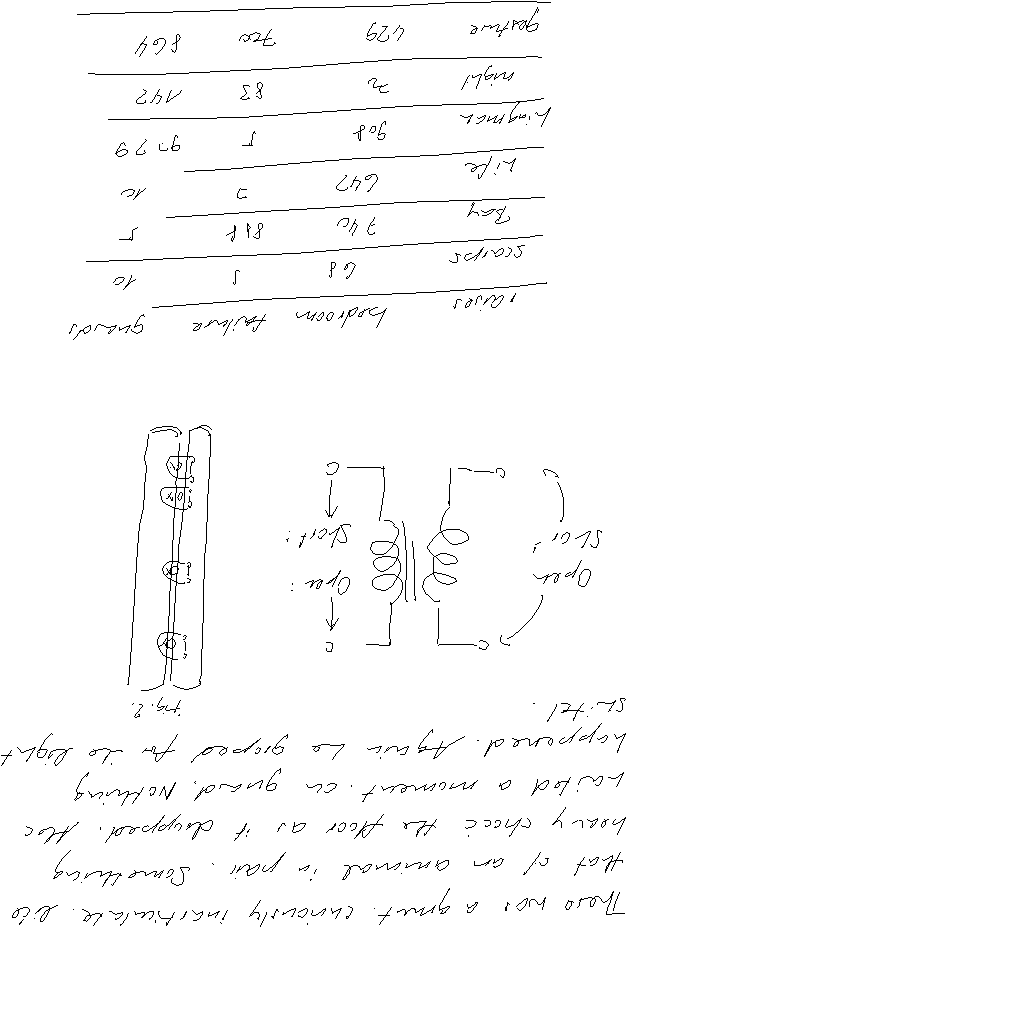 There was a grunt. curiously inarticulate. like
that of an animal in pain. Something
heavy shook the floor as it dropped.
waited a moment. on guard. Nothing
happened. Again he groped for the light
switch.
Fig. 2.
Open Open :
Short : Short :
raises bedroom failure guards
scarps 68 5 10
Bay 740 888 5
Life 647 2 10
hangman 908 5 9779
night 72 83 142
gesture 429 700 864